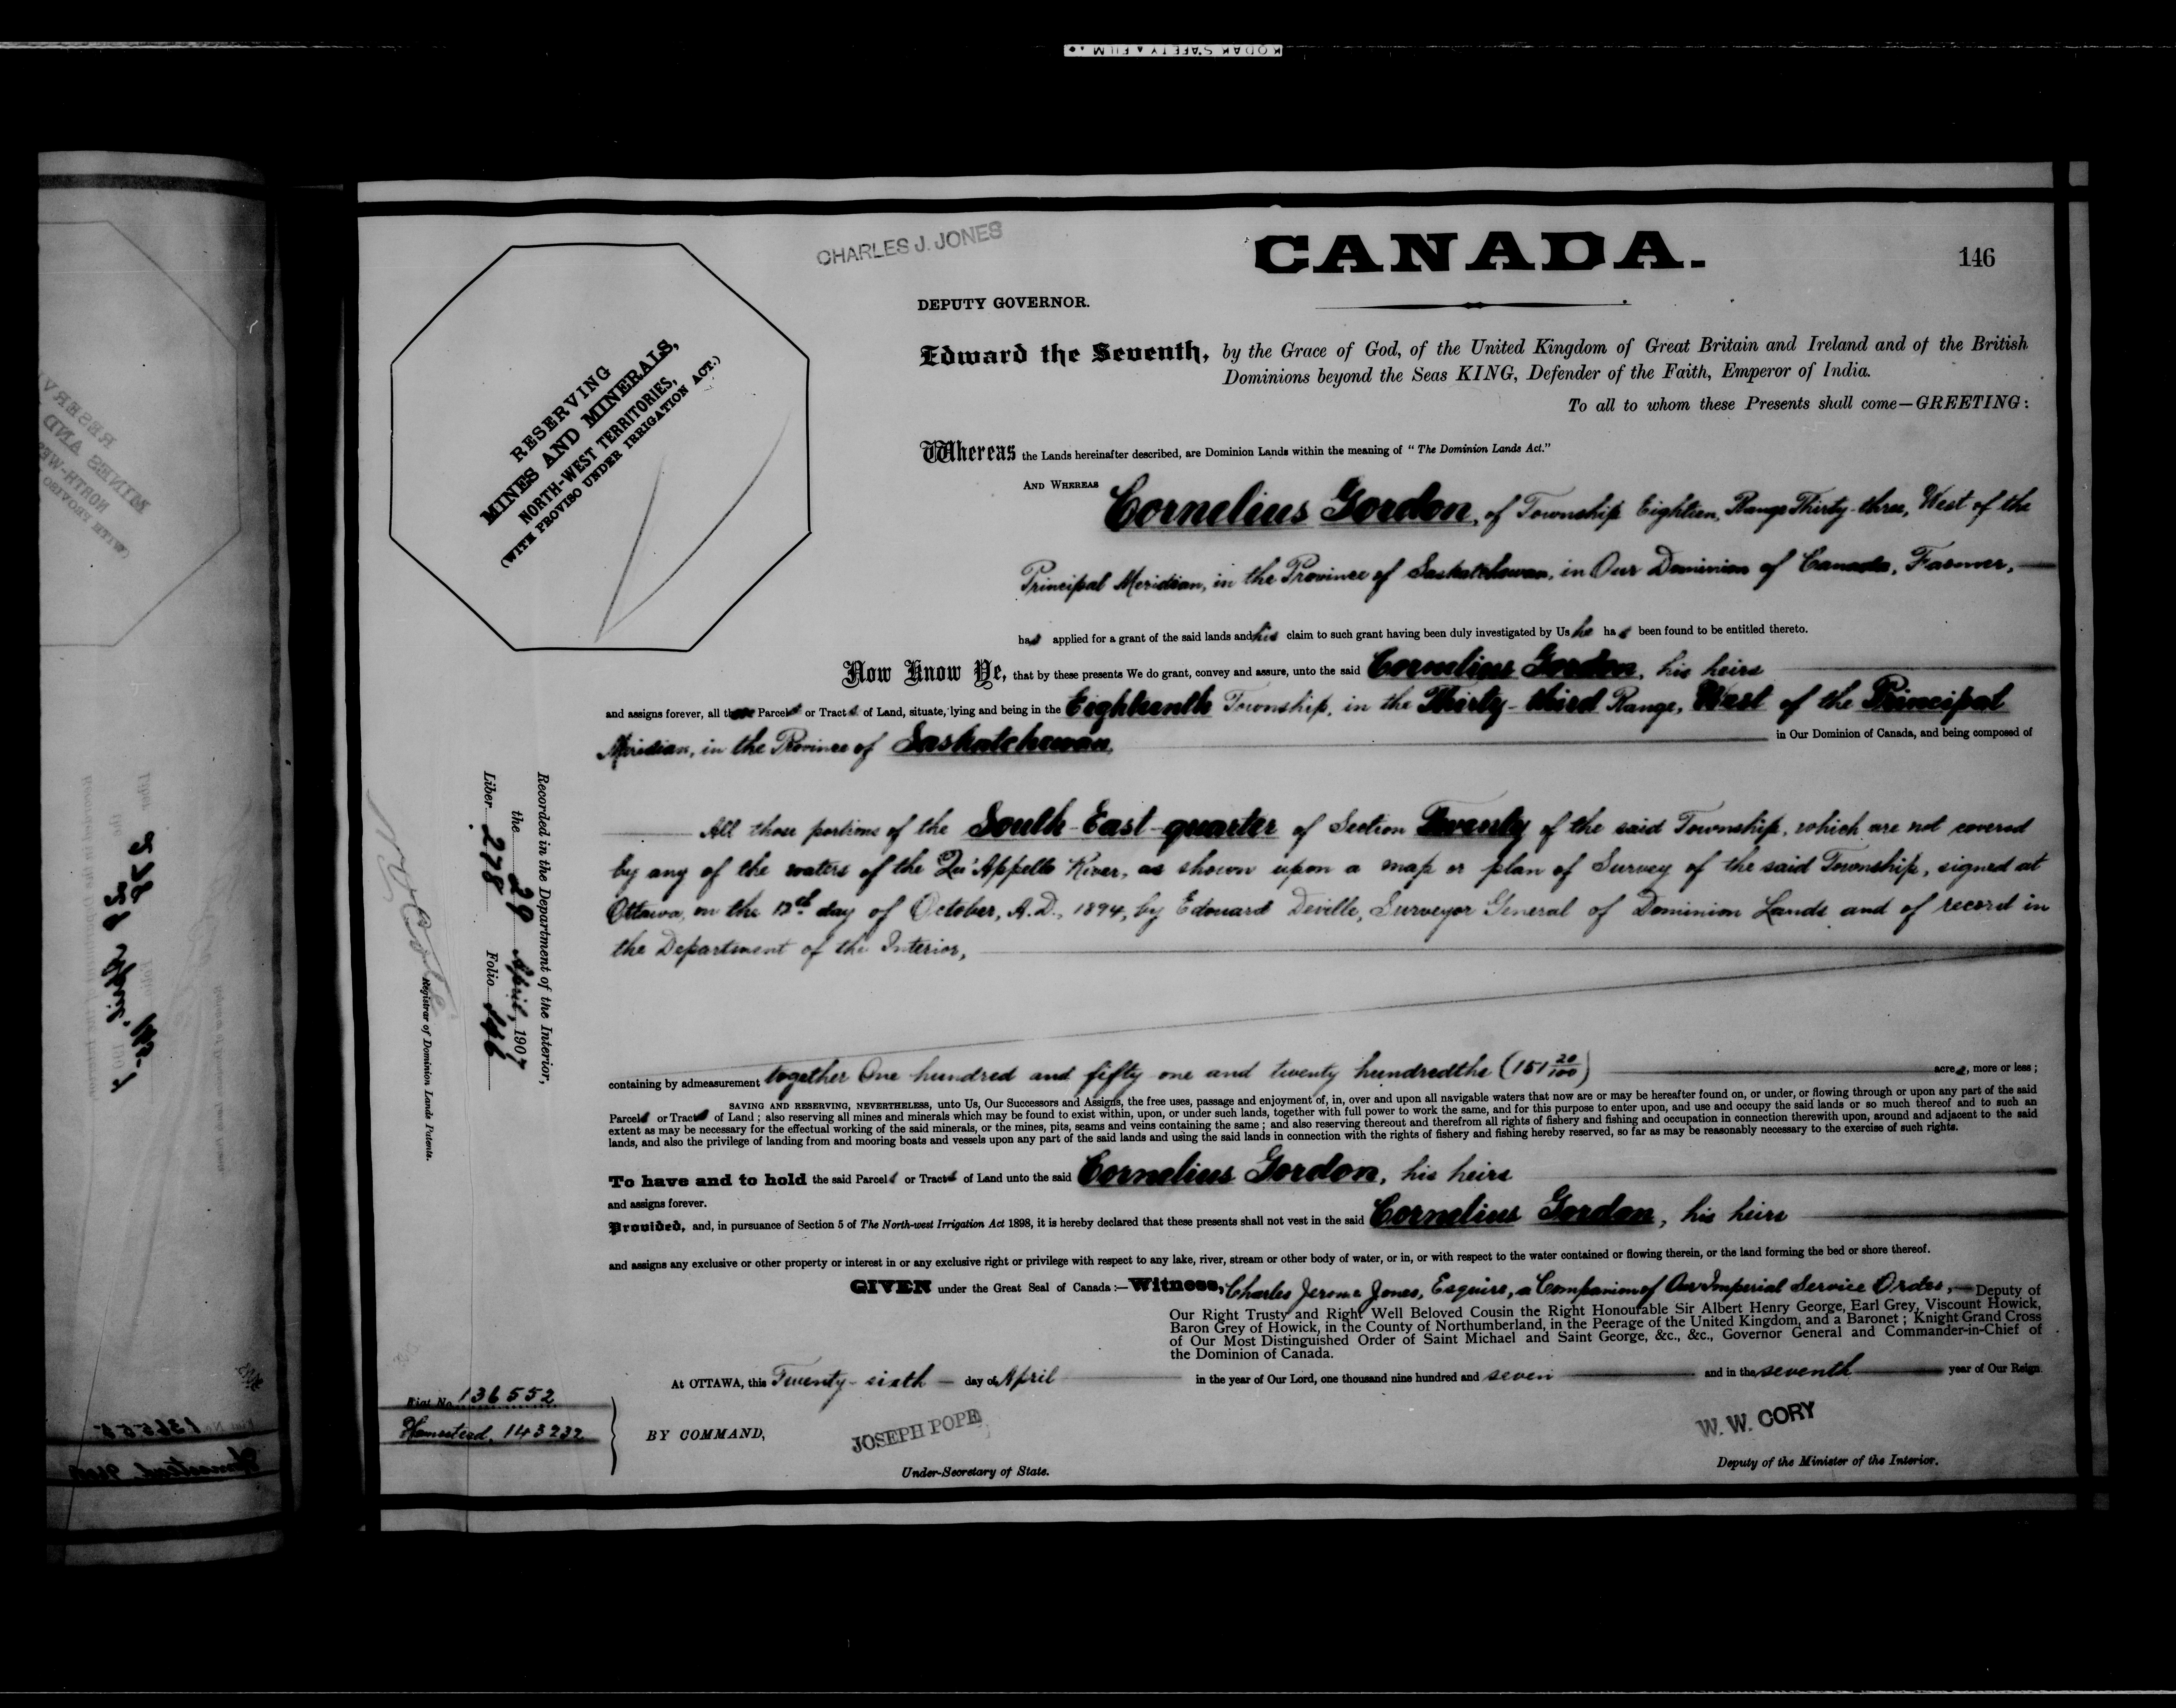 KODAK SAFETY FILM
CHARLES J. JONES
CANADA.
146
DEPUTY GOVERNOR.
RESERVING
MINES AND MINERALS,
NORTH-WEST TERRITORIES,
(WITH PROVISO UNDER IRRIGATION ACT.)
Edward the Seventh, by the Grace of God, of the United Kingdom of Great Britain and Ireland and of the British
Dominions beyond the Seas KING, Defender of the Faith, Emperor of India.
To all to whom these Presents shall come—GREETING:
Whereas the Lands hereinafter described, are Dominion Lands within the meaning of "The Dominion Lands Act."
AND WHEREAS Cornelius Gordon, of Township Eighteen, Range Thirty-three, West of the
Principal Meridian, in the Province of Saskatchewan, in Our Dominion of Canada, Farmer,
has applied for a grant of the said lands and his claim to such grant having been duly investigated by Us he has been found to be entitled thereto.
Now Know Ye, that by these presents We do grant, convey and assure, unto the said Cornelius Gordon, his heirs
and assigns forever, all those Parcels or Tracts of Land, situate, lying and being in the Eighteenth Township, in the Thirty-third Range, West of the Principal
Meridian, in the Province of Saskatchewan, in Our Dominion of Canada, and being composed of
All those portions of the South-East-quarter of Section Twenty of the said Township, which are not covered
by any of the waters of the Qu'Appelle River, as shown upon a map or plan of Survey of the said Township, signed at
Ottawa, on the 12th day of October, A.D., 1894, by Edouard Deville, Surveyor General of Dominion Lands and of record in
the Department of the Interior,
containing by admeasurement together One hundred and fifty one and twenty hundredths (151 20/100) acres, more or less;
SAVING AND RESERVING, NEVERTHELESS, unto Us, Our Successors and Assigns, the free uses, passage and enjoyment of, in, over and upon all navigable waters that now are or may be hereafter found on, or under, or flowing through or upon any part of the said
Parcels or Tracts of Land; also reserving all mines and minerals which may be found to exist within, upon, or under such lands, together with full power to work the same, and for this purpose to enter upon, and use and occupy the said lands or so much thereof and to such an
extent as may be necessary for the effectual working of the said minerals, or the mines, pits, seams and veins containing the same; and also reserving thereout and therefrom all rights of fishery and fishing and occupation in connection therewith upon, around and adjacent to the said
lands, and also the privilege of landing from and mooring boats and vessels upon any part of the said lands and using the said lands in connection with the rights of fishery and fishing hereby reserved, so far as may be reasonably necessary to the exercise of such rights.
To have and to hold the said Parcels or Tracts of Land unto the said Cornelius Gordon, his heirs
and assigns forever.
Provided, and, in pursuance of Section 5 of The North-west Irrigation Act 1898, it is hereby declared that these presents shall not vest in the said Cornelius Gordon, his heirs
and assigns any exclusive or other property or interest in or any exclusive right or privilege with respect to any lake, river, stream or other body of water, or in, or with respect to the water contained or flowing therein, or the land forming the bed or shore thereof.
GIVEN under the Great Seal of Canada:—Witness, Charles Jerome Jones, Esquire, a Companion of Our Imperial Service Order, Deputy of
Our Right Trusty and Right Well Beloved Cousin the Right Honourable Sir Albert Henry George, Earl Grey, Viscount Howick,
Baron Grey of Howick, in the County of Northumberland, in the Peerage of the United Kingdom, and a Baronet; Knight Grand Cross
of Our Most Distinguished Order of Saint Michael and Saint George, &c., &c., Governor General and Commander-in-Chief of
the Dominion of Canada.
At OTTAWA, this Twenty-sixth day of April in the year of Our Lord, one thousand nine hundred and seven and in the seventh year of Our Reign
BY COMMAND,
JOSEPH POPE
Under-Secretary of State.
W. W. CORY
Deputy of the Minister of the Interior.
Recorded in the Department of the Interior,
the 29 April, 1907
Liber 278 Folio 146
Registrar of Dominion Lands Patents.
Fiat No. 136552
Homestead, 143232